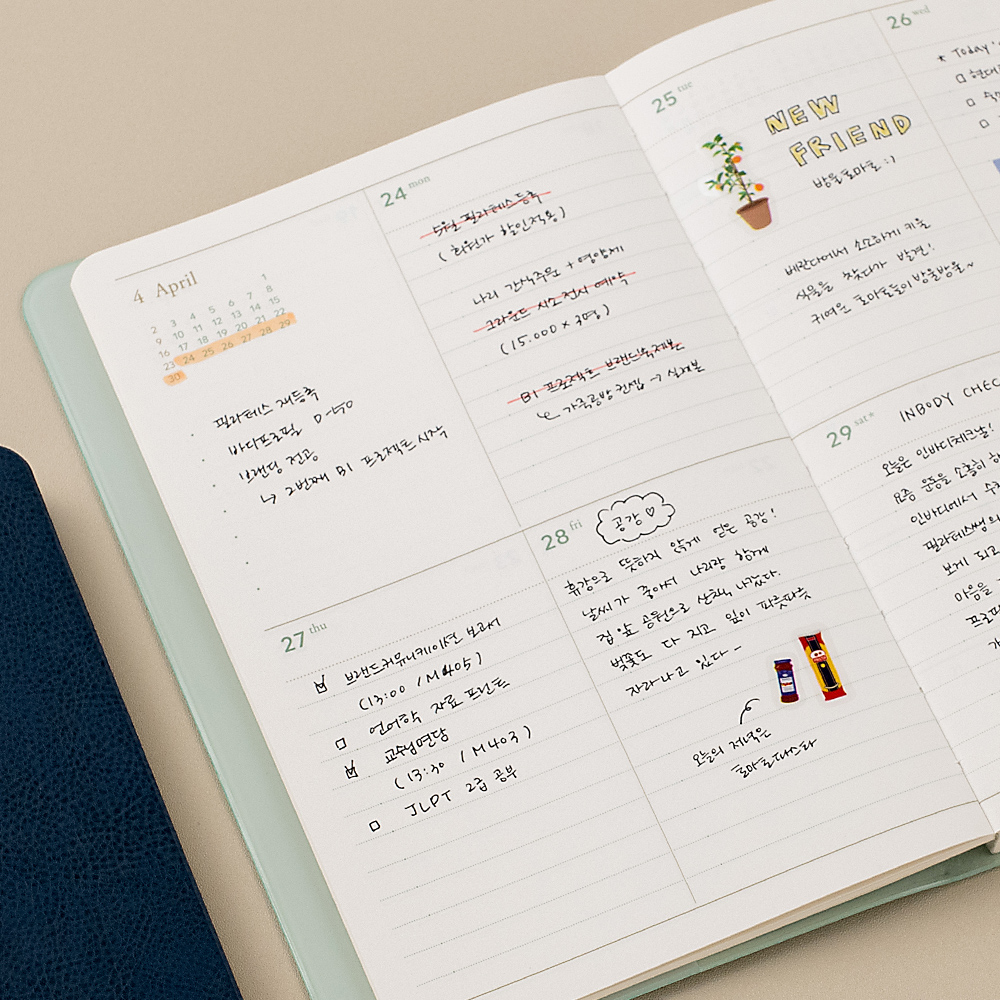 4 April
1
2 3 4 5 6 7 8
9 10 11 12 13 14 15
16 17 18 19 20 21 22
23 24 25 26 27 28 29
30
필라테스 재등록
바디프로필 D-50
브랜딩 전공
↳ 2번째 BI 프로젝트 시작
24 mon
5월 필라테스 등록
(회원가 할인적용)
나리 간식주문 + 영양제
그라운드 시소 전시 예약
(15.000 × 2명)
BI 프로젝트 브랜드북제본
가죽공방 컨셉 → 실제본
27 thu
☑ 브랜드커뮤니케이션 보고서
(13:00 / M405)
□ 언어학 자료 프린트
☑ 교수님면담
(13:30 / M403)
□ JLPT 2급 공부
28 fri
공강 ♡
휴강으로 뜻하지 않게 얻은 공강!
날씨가 좋아서 나리랑 함께
집 앞 공원으로 산책 나갔다.
벚꽃도 다 지고 잎이 파릇파릇
자라나고 있다 ~
오늘의 저녁은
토마토파스타
25 tue
NEW
FRIEND
방울토마토 :)
베란다에서 소소하게 키울
식물을 찾다가 발견!
귀여운 토마토들이 방울방울~
26 wed
* Today'
□ 현대
□
□
29 sat
INBODY CHEC
오늘은 인바디체크날!
요즘 운동을 소홀히 해
인바디에서 수
필라테스쌤의
보게 되고
마음을
프로필